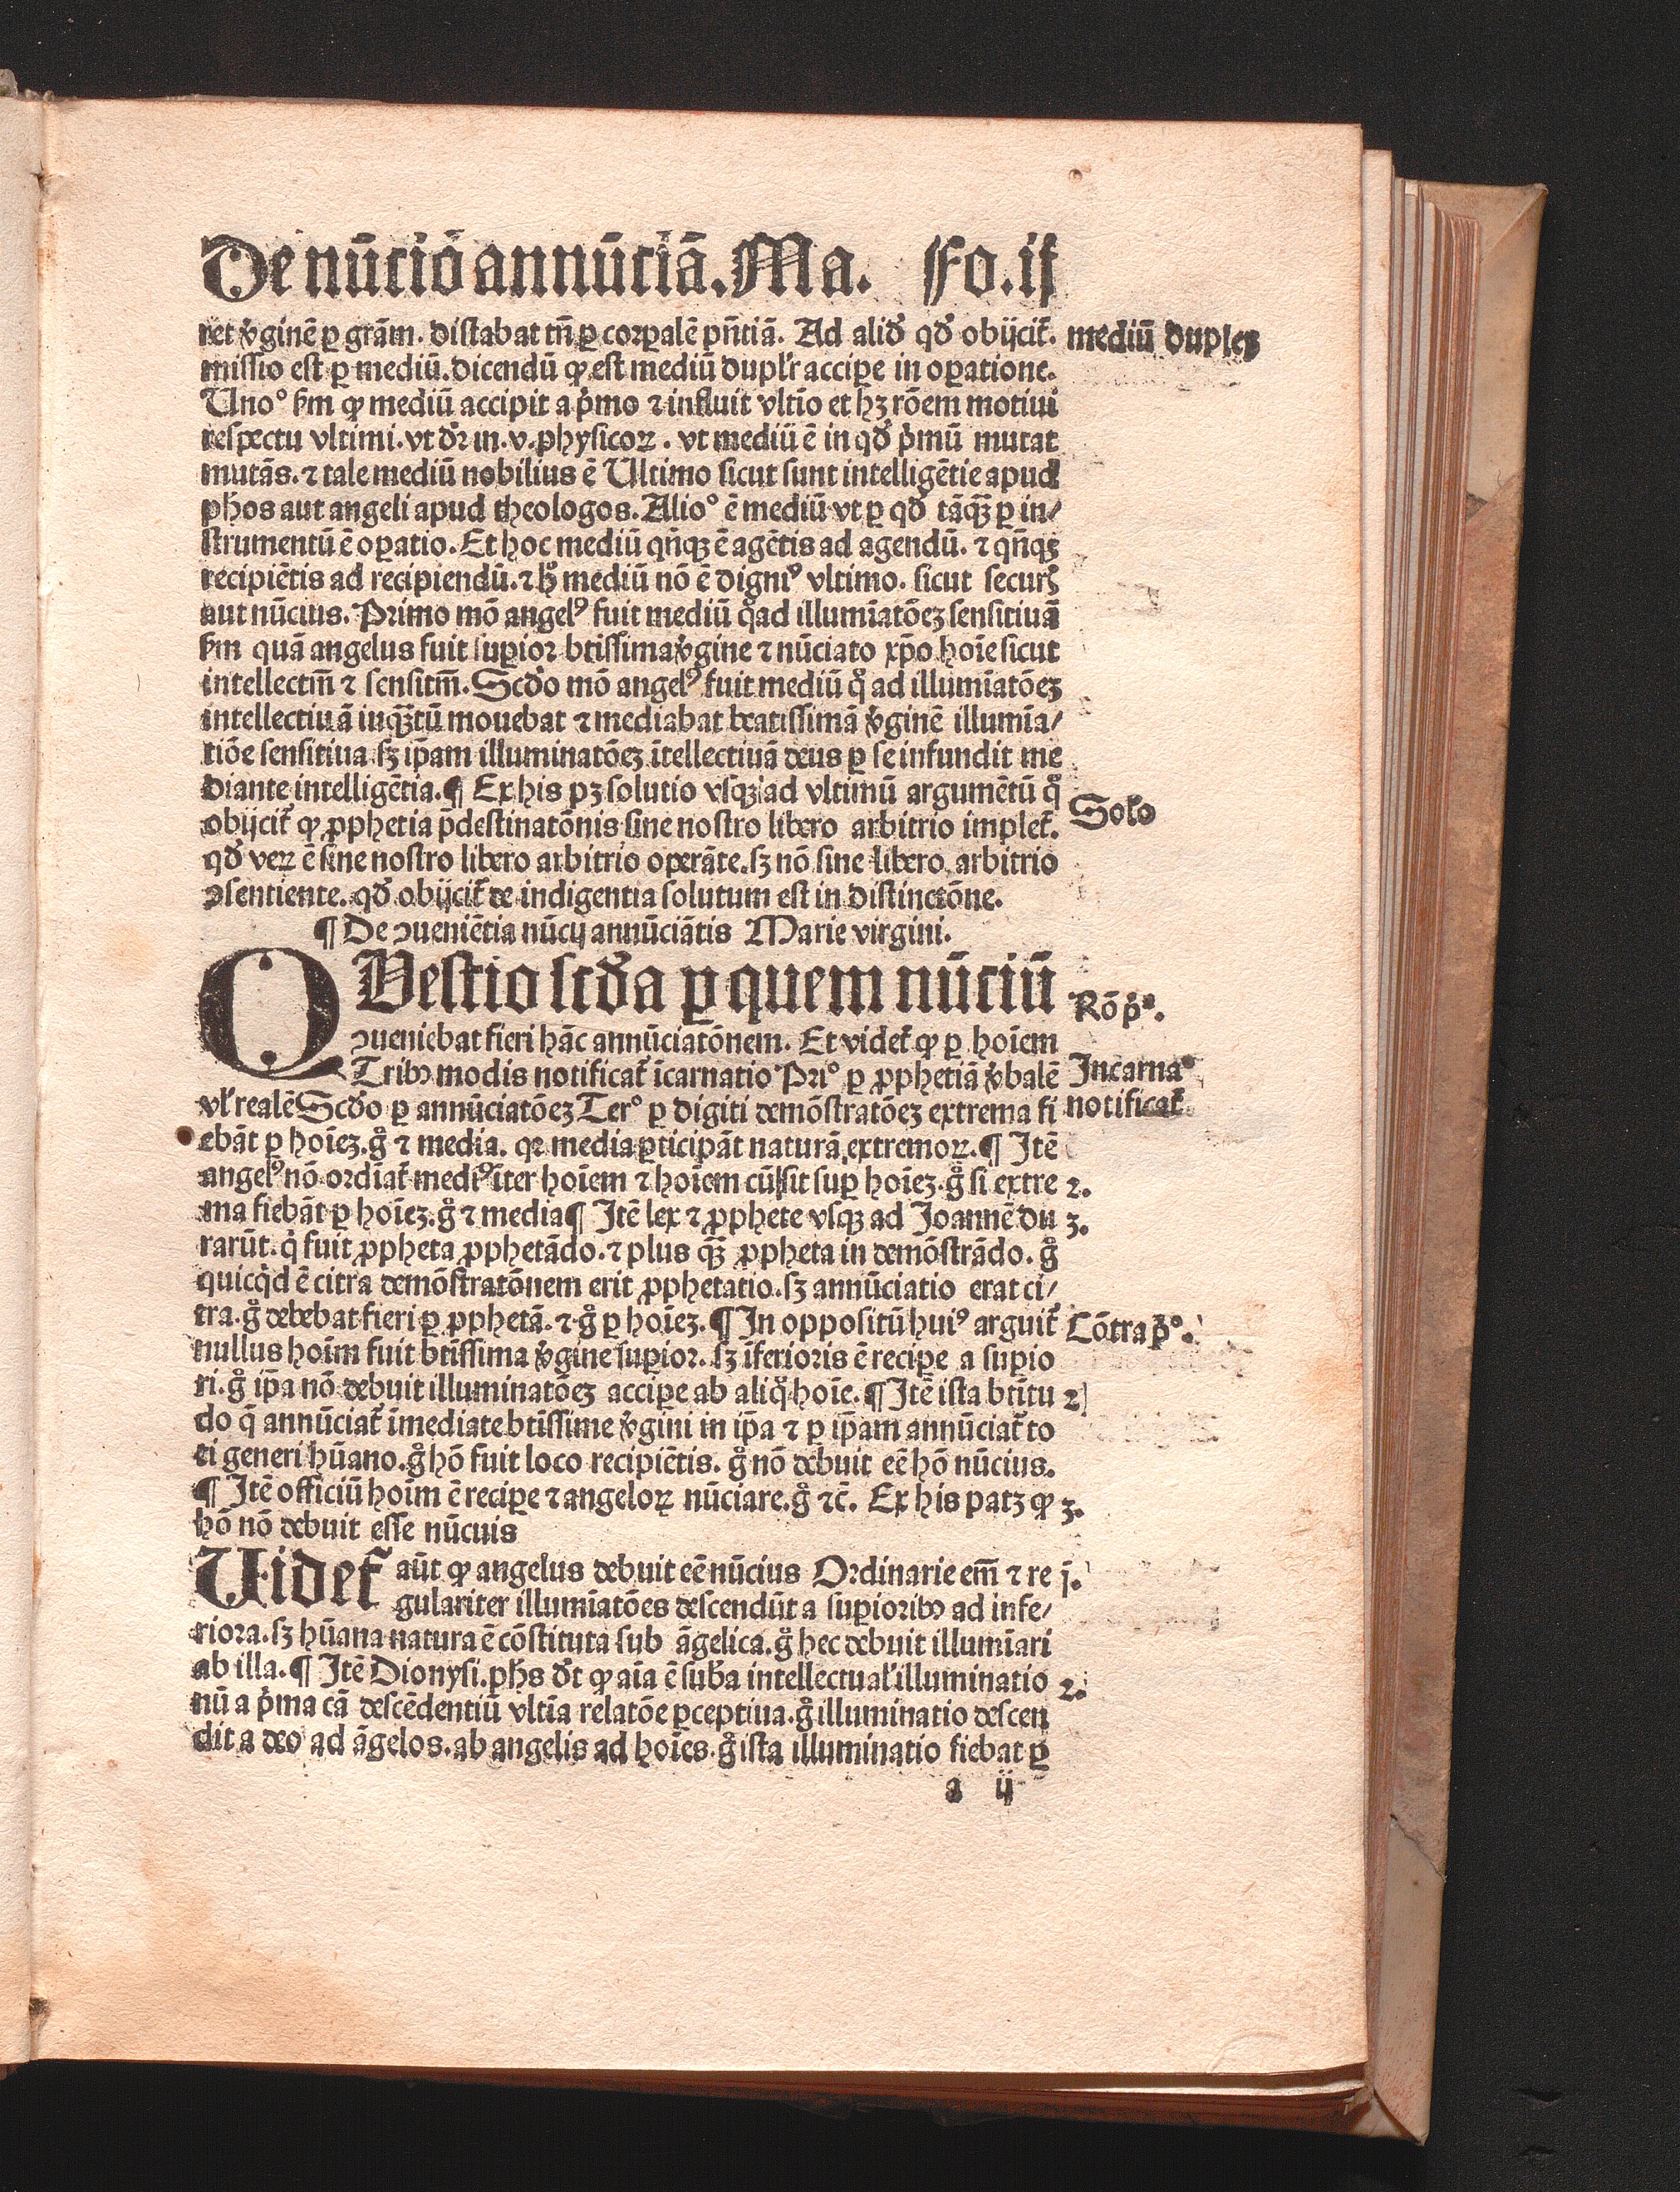 De nūciō annūciā. Ma. Fo. ij
ret v̾ginē ꝑ grām. distabat tn̄ ꝑ corꝑalē pn̄tiā. Ad aliđ qđ obijcit᷑. mediū duplex
missio est ꝑ mediū. dicendū ꝙ est mediū duplr̄ acciꝑe in oꝑatione.
Uno° ẜm ꝙ mediū accipit a p̄mo ⁊ influit vltīo et hꝫ rōem motiui
respectu vltimi. vt dr̄ in. v. physicoꝝ. vt mediū ē in qđ p̄mū mutat
mutās. ⁊ tale mediū nobilius ē Ultimo sicut sunt intelligētie apud
phōs aut angeli apud theologos. Alio° ē mediū vt ꝑ qđ tāqꝫ̄ ꝑ in/
strumentū ē oꝑatio. Et hoc mediū qn̄qꝫ ē agētis ad agendū. ⁊ qn̄qꝫ
recipiētis ad recipiendū. ⁊ h̊ mediū nō ē digniꝰ vltimo. sicut securꝭ
aut nūcius. Primo mō angelꝰ fuit mediū q̊ad illumīatōeꝫ sensitiuā
ẜm quā angelus fuit suꝑior btissima v̾gine ⁊ nūciato xp̄o hoīe sicut
intellectm̄ ⁊ sensitm̄. Scđo mō angelꝰ fuit mediū q̊ ad illumīatōeꝫ
intellectiuā inqꝫ̄tū mouebat ⁊ mediabat beatissimā v̾ginē illumīa/
tiōe sensitiua. sꝫ ip̄am illuminatōeꝫ ītellectiuā deus ꝑ se infundit me
diante intelligētia. ¶ Ex his pꝫ solutio vsqꝫ ad vltimū argumētū q̊
obijcit᷑ ꝙ ꝓphetia p̄destinatōnis sine nostro libero arbitrio implet᷑. Solo
qđ veꝝ ē sine nostro libero arbitrio operāte. sꝫ nō sine libero arbitrio
ↄsentiente. qđ obijcit᷑ de indigentia solutum est in distinctōne.
¶ De ↄueniētia nūcij annūciātis Marie virgini.
QVestio scđa ꝑ quem nūciū
ↄueniebat fieri hāc annūciatōnem. Et videt᷑ ꝙ ꝑ hoīem Rō pª.
Tribꝰ modis notificat᷑ īcarnatio Pri° ꝑ ꝓphetiā v̾balē Incarna°
vl̄ realē Scđo ꝑ annūciatōeꝫ Ter° ꝑ digiti demōstratōeꝫ extrema fi notificat᷑
ebāt ꝑ hoīeꝫ. g̊ ⁊ media. qꝛ media ꝑticipāt naturā extremoꝝ. ¶ Itē
angelꝰ nō ordīat᷑ mediꝰ īter hoīem ⁊ hoīem cū sit suꝑ hoīeꝫ. g̊ si extre 2.
ma fiebāt ꝑ hoīeꝫ. g̊ ⁊ media ¶ Itē lex ⁊ ꝓphete vsqꝫ ad Joannē du 3.
rarūt. q̇ fuit ꝓpheta ꝓphetādo. ⁊ plus qꝫ̄ ꝓpheta in demōstrādo. g̊
quicq̇d ē citra demōstratōnem erit ꝓphetatio. sꝫ annūciatio erat ci/
tra. g̊ debebat fieri ꝑ ꝓphetā. ⁊ g̊ ꝑ hoīeꝫ. ¶ In oppositū huiꝰ arguit᷑ Cōtra p°.
nullus hoīm fuit btīssima v̾gine suꝑior. sꝫ īferioris ē reciꝑe a suꝑio
ri. g̊ ip̄a nō debuit illuminatōeꝫ acciꝑe ab aliq̊ hoīe. ¶ Itē ista btītu 2
do q̄ annūciat᷑ īmediate btīssime v̾gini in ip̄a ⁊ ꝑ ip̄am annūciat᷑ to
ti generi hūano. g̊ hō fuit loco recipiētis. g̊ nō debuit eē hō nūcius.
¶ Itē officiū hoīm ē reciꝑe ⁊ angeloꝝ nūciare. g̊ ⁊c̄. Ex his patꝫ ꝙ 3.
hō nō debuit esse nūcuis
Uidet᷑ aūt ꝙ angelus debuit eē nūcius Ordinarie em̄ ⁊ re j.
gulariter illumīatōes descendūt a suꝑioribꝰ ad infe/
riora. sꝫ hūana natura ē cōstituta sub āgelica. g̊ hec debuit illumīari
ab illa. ¶ Itē Dionysi. phs̄ dt̄ ꝙ aīa ē sub̄a intellectual̄ illuminatio 2.
nū a p̄ma cā descēdentiū vltīa relatōe ꝑceptiua. g̊ illuminatio descen
dit a deo ad āgelos. ab angelis ad hoīes. g̊ ista illuminatio fiebat ꝑ
a ij